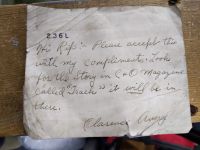 236L
Hi Rip:- Please accept this
with my compliments. Look
for the Story in C+O Magazine
Called "Tracks" it will be in
there.
Clarence